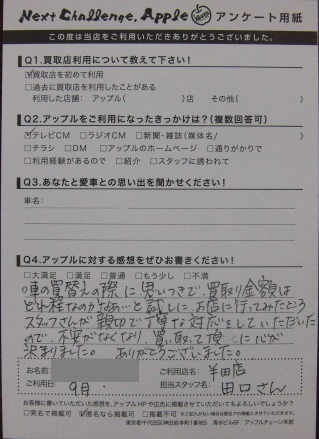 Next Challenge, Apple アンケート用紙
この度は当店をご利用いただきありがとうございました。
Q1.買取店利用について教えて下さい!
☑買取店を初めて利用
□過去に買取店を利用したことがある
利用した店舗: アップル( )店 その他( )
Q2.アップルをご利用になったきっかけは?(複数回答可)
☑テレビCM □ラジオCM □新聞・雑誌(媒体名/ )
□チラシ □DM □アップルのホームページ □通りがかりで
□利用経験があるので □紹介 □スタッフに誘われて
Q3.あなたと愛車との思い出を聞かせください!
車名:
Q4.アップルに対する感想をぜひお書きください!
□大満足 □満足 □普通 □もう少し □不満
車の買替えの際に思いつきで、買取り金額は
どれ程なのかなあ…と試しに、お店に行ってみたところ
スタッフさんが親切で丁寧な対応をしていただいた
ので、不安がなくなり、買い取って頂くに心が
決まりました。ありがとうございました。
お名前: ご利用店名: 半田店
ご利用日: 9月 担当スタッフ名: 田口さん
お客様に書いていただいた感想を、アップルHPや広告に掲載させていただいてもよろしいでしょうか?
□実名で掲載可 ☑匿名なら掲載可 □掲載不可
東京都千代田区神田鍛冶町1番地5 清水ビル6F アップルチェーン本部